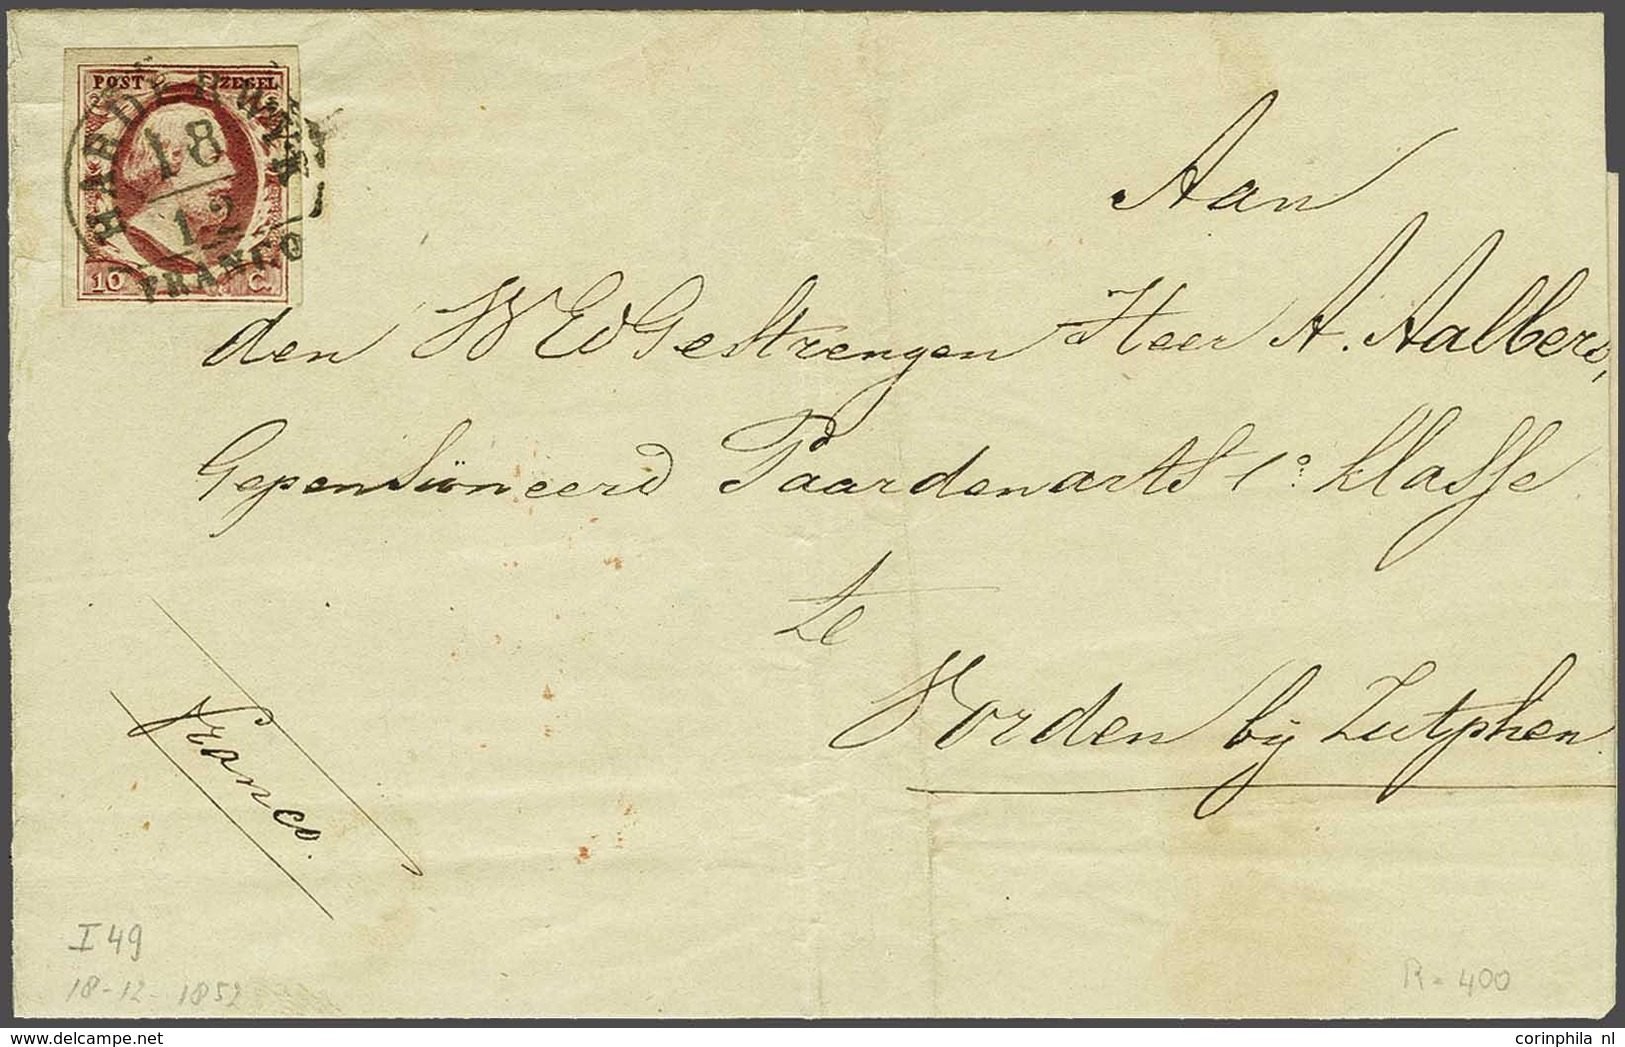 POST ZEGEL
HARDERWYK
18
12
FRANCO
10 C.
Aan
den WEdGeStrengen Heer A. Aalbers,
Gepensioneerd Paardenarts 1e Klasse
te
Vorden bij Zutphen.
Franco.
I 49
18-12-1852
R = 400
www.delcampe.net
corinphila nl